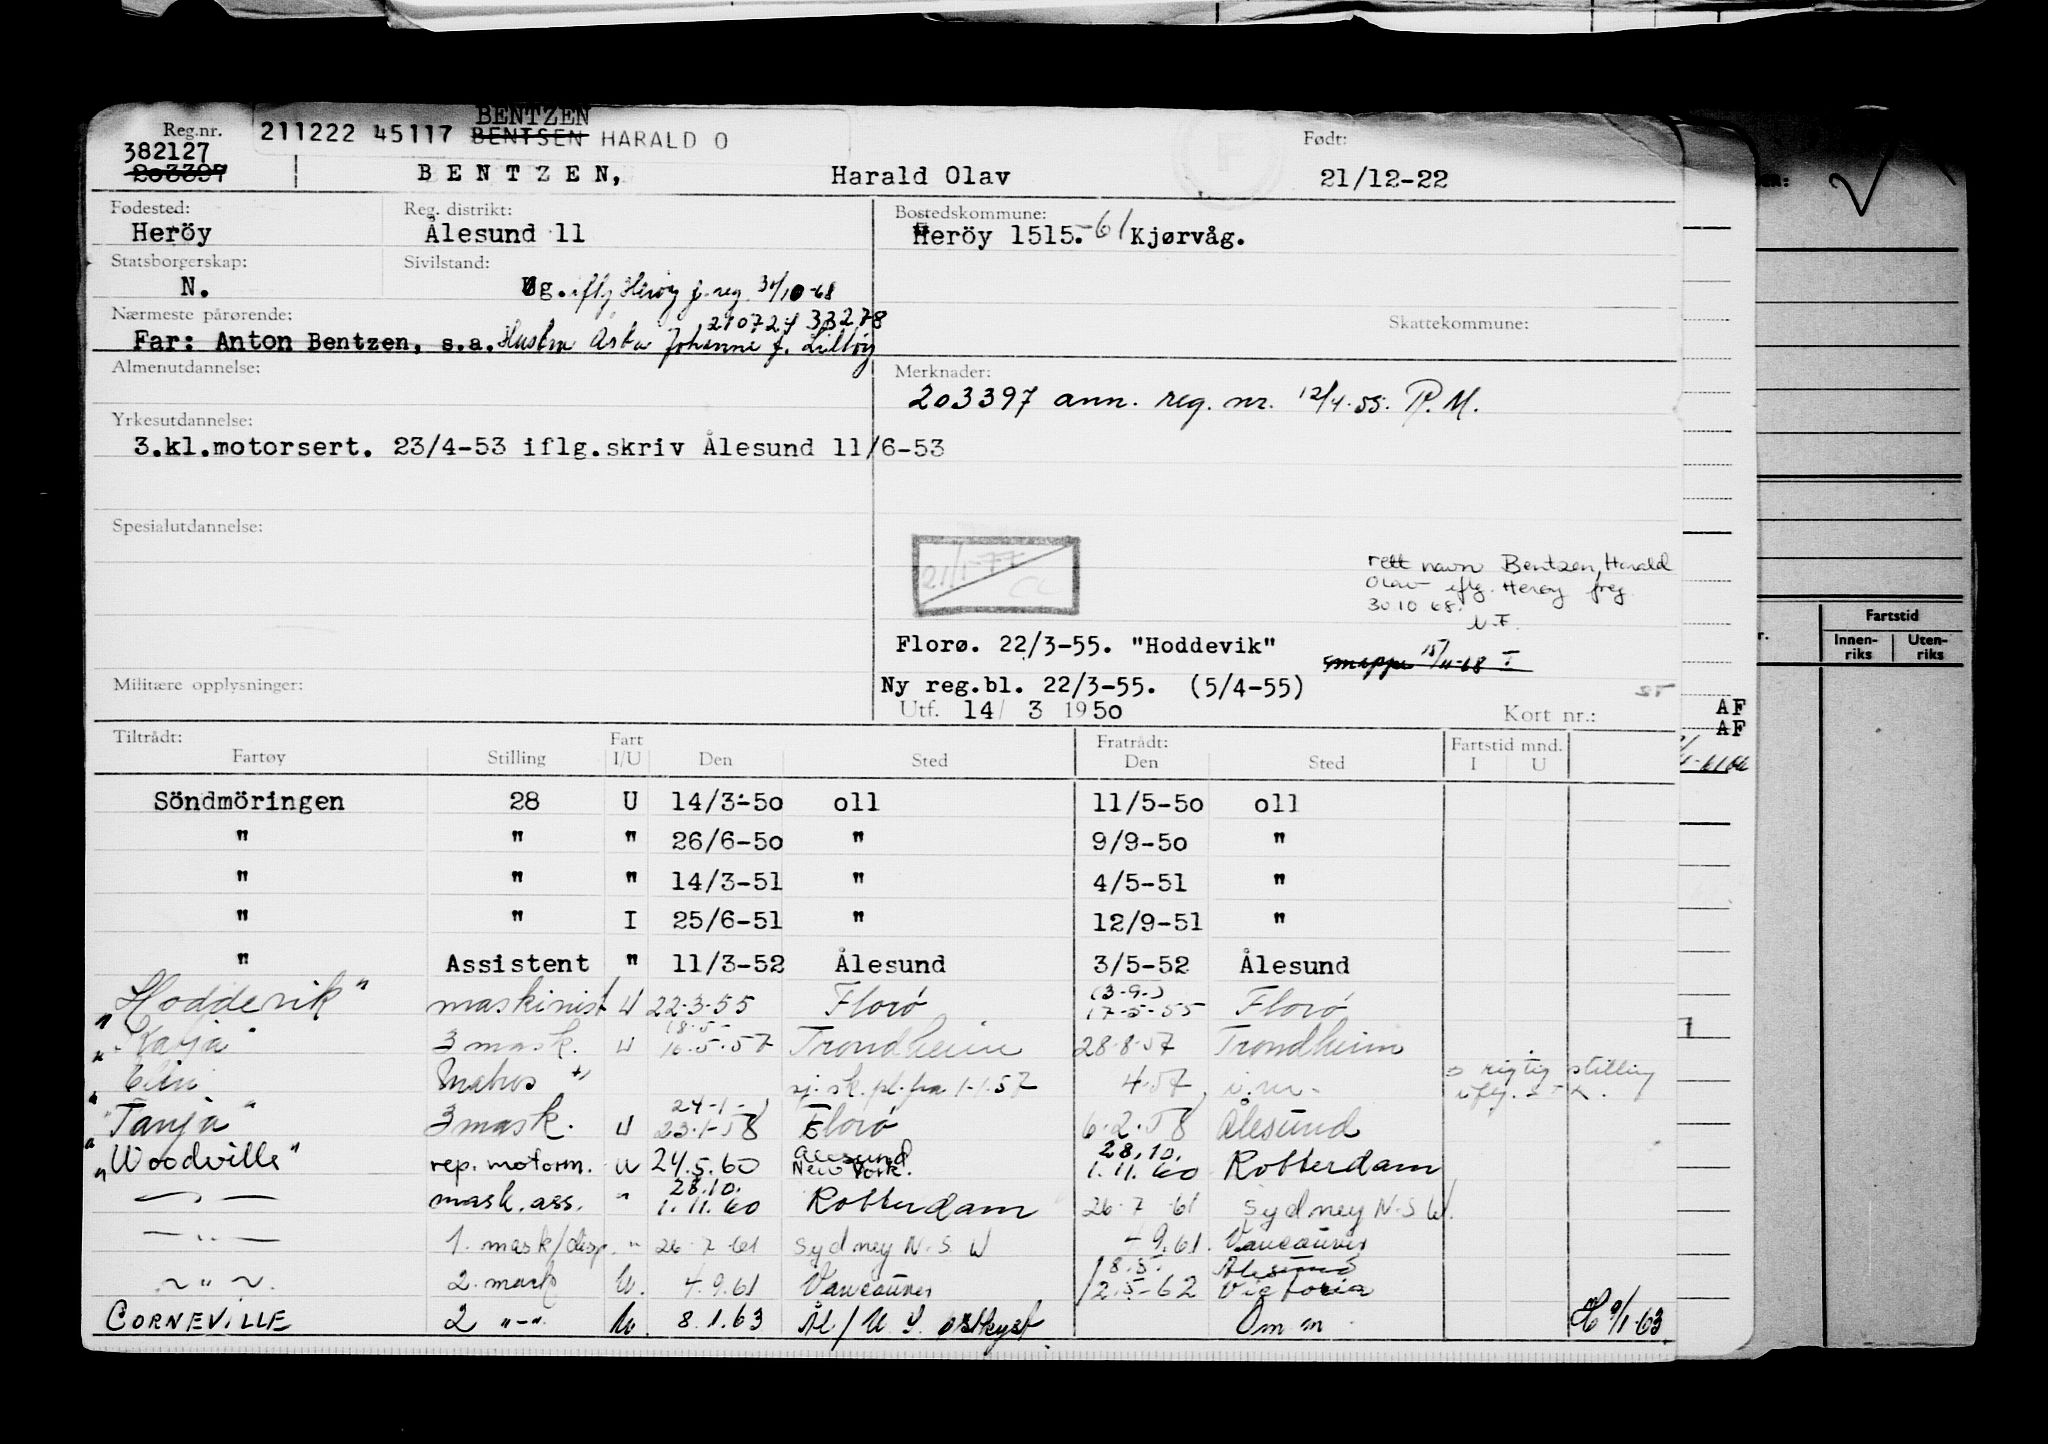 BENTZEN
Reg.nr. 211222 45117 BENTSEN HARALD O Født:
382127
203397 BENTZEN, Harald Olav 21/12-22
Fødested: Reg. distrikt: Bostedskommune:
Heröy Ålesund 11 Heröy 1515.-61 Kjørvåg.
Statsborgerskap: Sivilstand:
N. g. iflg Herøy f.reg. 30/10-68
Nærmeste pårørende: 210724 33278 Skattekommune:
Far: Anton Bentzen, s.a. Hustru Johanne f.
Almenutdannelse: Merknader:
203397 ann. reg. nr. 12/4.55. P.M.
Yrkesutdannelse:
3.kl.motorsert. 23/4-53 iflg.skriv Ålesund 11/6-53
Spesialutdannelse:
21/1-77
rett navn Bentzen, Harald
Olav iflg. Herøy freg
30 10 68.
N.F.
Florø. 22/3-55. "Hoddevik"
smappe 15/11-68 I
Militære opplysninger: Ny reg.bl. 22/3-55. (5/4-55)
Utf. 14/ 3 1950 Kort nr.:
AF
AF
Fartstid
Innen-riks Uten-riks
Tiltrådt: Fart Fratrådt: Fartstid mnd.
Fartøy Stilling I/U Den Sted Den Sted I U
Söndmöringen 28 U 14/3-50 oll 11/5-50 oll
" " " 26/6-50 " 9/9-50 "
" " " 14/3-51 " 4/5-51 "
" " I 25/6-51 " 12/9-51 "
" Assistent " 11/3-52 Ålesund 3/5-52 Ålesund
(3.9.)
"Hoddevik" maskinist U 22.3.55 Florø 17-5-55 Florø
18.5-
"Katja" 3 mask. U 16.5.57 Trondheim 28.8.57 Trondheim
Matros sj. sk. pl. fra 1-1.57 4.57 rigtig stilling
24-1-
"Tanja" 3 mask. U 23.1-58 Florø 6.2.58 Ålesund
Ålesund 28.10.
"Woodville" rep. motorm. U 24.5.60 New York. 1.11.60 Rotterdam
28.10.
— " — mask. ass. " 1.11.60 Rotterdam 26-7-61 Sydney N.S W.
— " — 1. mask/disp. " 26-7-61 Sydney N.S. W -9.61. Vancouver
18.5. Ålesund
~ " ~. 2. mask U. 4.9.61 Vancouver 12.5-62 Victoria
CORNEVILLE 2 "-". U. 8.1.63 Ål./ U S. østkyst Om m H 9/1-63.